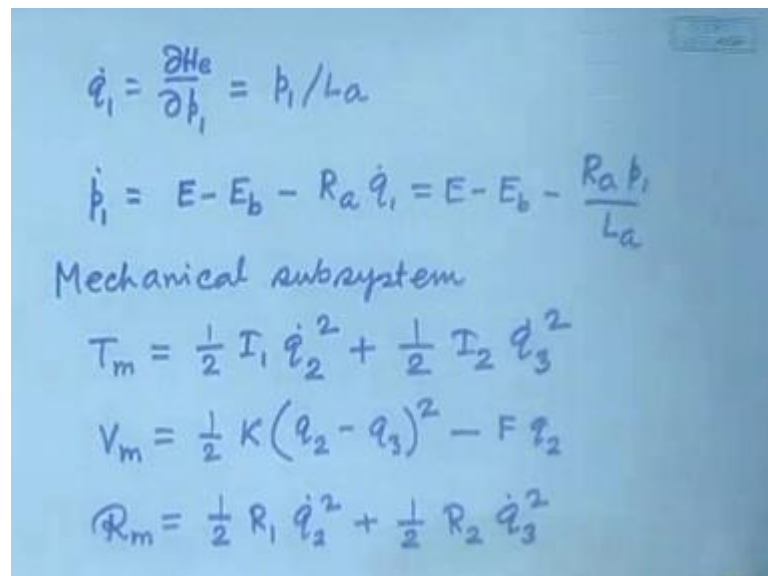 q̇₁ = ∂He/∂p₁ = p₁/La
ṗ₁ = E - E_b - Ra q̇₁ = E - E_b - Ra p₁/La
Mechanical subsystem
T_m = ½ I₁ q̇₂² + ½ I₂ q̇₃²
V_m = ½ K(q₂ - q₃)² - F q₂
ℛ_m = ½ R₁ q̇₂² + ½ R₂ q̇₃²